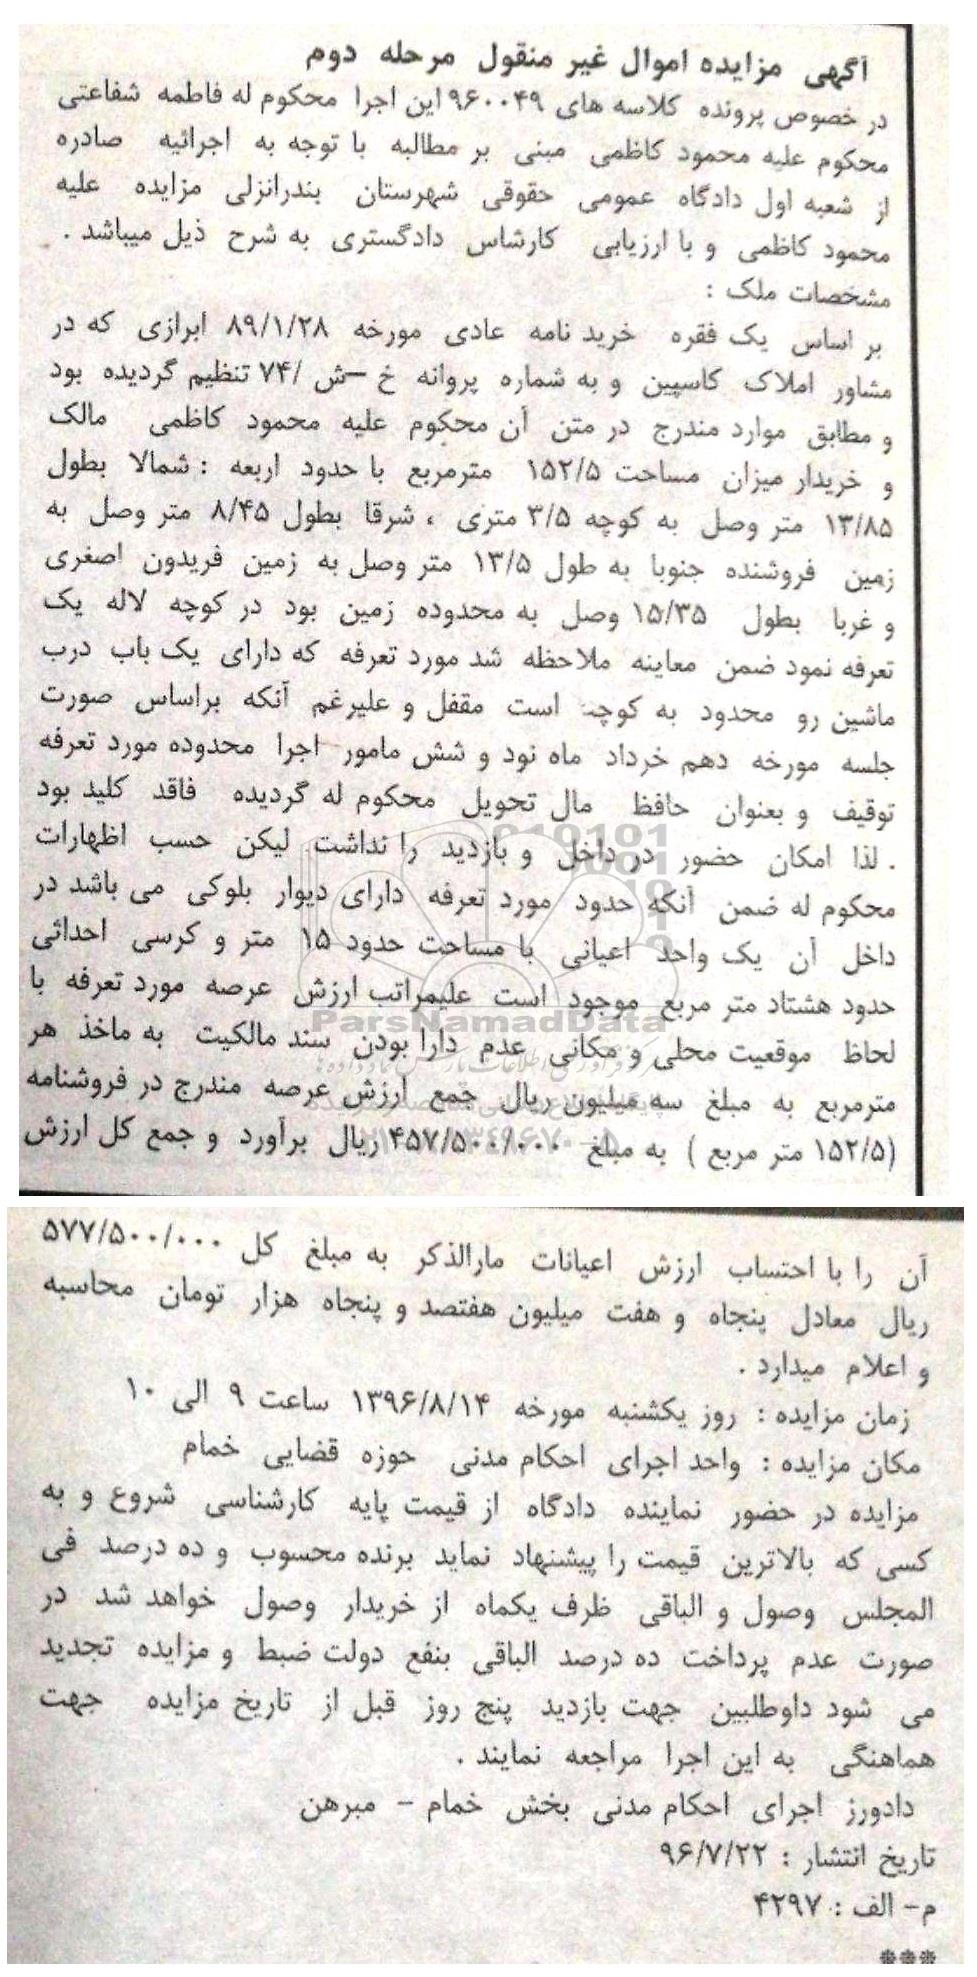 آگهی مزایده اموال غیر منقول مرحله دوم
در خصوص پرونده کلاسه های ۹۶۰۰۴۹ این اجرا محکوم له فاطمه شفاعتی
محکوم علیه محمود کاظمی مبنی بر مطالبه با توجه به اجرائیه صادره
از شعبه اول دادگاه عمومی حقوقی شهرستان بندرانزلی مزایده علیه
محمود کاظمی و با ارزیابی کارشناس دادگستری به شرح ذیل میباشد .
مشخصات ملک :
بر اساس یک فقره خرید نامه عادی مورخه ۸۹/۱/۲۸ ابرازی که در
مشاور املاک کاسپین و به شماره پروانه خ –ش /۷۴ تنظیم گردیده بود
و مطابق موارد مندرج در متن آن محکوم علیه محمود کاظمی مالک
و خریدار میزان مساحت ۱۵۲/۵ مترمربع با حدود اربعه : شمالا بطول
۱۳/۸۵ متر وصل به کوچه ۳/۵ متری ، شرقا بطول ۸/۴۵ متر وصل به
زمین فروشنده جنوبا به طول ۱۳/۵ متر وصل به زمین فریدون اصغری
و غربا بطول ۱۵/۳۵ وصل به محدوده زمین بود در کوچه لاله یک
تعرفه نمود ضمن معاینه ملاحظه شد مورد تعرفه که دارای یک باب درب
ماشین رو محدود به کوچه است مقفل و علیرغم آنکه براساس صورت
جلسه مورخه دهم خرداد ماه نود و شش مامور اجرا محدوده مورد تعرفه
توقیف و بعنوان حافظ مال تحویل محکوم له گردیده فاقد کلید بود
. لذا امکان حضور در داخل و بازدید را نداشت لیکن حسب اظهارات
محکوم له ضمن آنکه حدود مورد تعرفه دارای دیوار بلوکی می باشد در
داخل آن یک واحد اعیانی با مساحت حدود ۱۵ متر و کرسی احداثی
حدود هشتاد متر مربع موجود است علیمراتب ارزش عرصه مورد تعرفه با
ParsNamadData
لحاظ موقعیت محلی و مکانی عدم دارا بودن سند مالکیت به ماخذ هر
مترمربع به مبلغ سه میلیون ریال جمع ارزش عرصه مندرج در فروشنامه
(۱۵۲/۵ متر مربع ) به مبلغ ۴۵۷/۵۰۰/۰۰۰ ریال برآورد و جمع کل ارزش
آن را با احتساب ارزش اعیانات مارالذکر به مبلغ کل ۵۷۷/۵۰۰/۰۰۰
ریال معادل پنجاه و هفت میلیون هفتصد و پنجاه هزار تومان محاسبه
و اعلام میدارد .
زمان مزایده : روز یکشنبه مورخه ۱۳۹۶/۸/۱۴ ساعت ۹ الی ۱۰
مکان مزایده : واحد اجرای احکام مدنی حوزه قضایی خمام
مزایده در حضور نماینده دادگاه از قیمت پایه کارشناسی شروع و به
کسی که بالاترین قیمت را پیشنهاد نماید برنده محسوب و ده درصد فی
المجلس وصول و الباقی ظرف یکماه از خریدار وصول خواهد شد در
صورت عدم پرداخت ده درصد الباقی بنفع دولت ضبط و مزایده تجدید
می شود داوطلبین جهت بازدید پنج روز قبل از تاریخ مزایده جهت
هماهنگی به این اجرا مراجعه نمایند .
دادورز اجرای احکام مدنی بخش خمام – مبرهن
تاریخ انتشار : ۹۶/۷/۲۲
م- الف : ۴۲۹۷
***